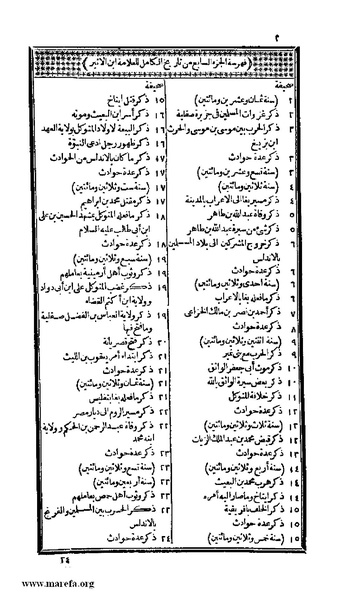 ٢
(فهرسة الجزء السابع من تاريخ الكامل للعلامة ابن الأثير)
صحيفة
٢ (سنة ثمان وعشرين ومائتين)
٢ ذكر غزوات المسلمين في جزيرة صقلية
٣ ذكر الحرب بين موسى بن موسى والحرث
ابن بزيغ
٣ ذكر عدة حوادث
٣ (سنة تسع وعشرين ومائتين)
٤ (سنة ثلاثين ومائتين)
٤ ذكر مسير بغا الى الاعراب بالمدينة
٤ ذكر وفاة عبد الله بن طاهر
٥ ذكر شئ من سيرة عبد الله بن طاهر
٦ ذكر خروج المشركين الى بلاد المسلمين
بالاندلس
٦ ذكر عدة حوادث
٦ (سنة احدى وثلاثين ومائتين)
٦ ذكر ما فعله بغا بالاعراب
٧ ذكر أحمد بن نصر بن مالك الخزاعي
٨ ذكر عدة حوادث
٩ (سنة اثنتين وثلاثين ومائتين)
٩ ذكر الحرب مع بني نمير
١٠ ذكر موت أبي جعفر الواثق
١٠ ذكر بعض سيرة الواثق بالله
١١ ذكر خلافة المتوكل
١٢ ذكر عدة حوادث
١٢ (سنة ثلاث وثلاثين ومائتين)
١٢ ذكر قبض محمد بن عبد الملك الزيات
١٣ ذكر عدة حوادث
١٤ (سنة أربع وثلاثين ومائتين)
١٤ ذكر هرب محمد بن البعيث
١٤ ذكر ايتاخ وما صار اليه أمره
١٥ ذكر الخلف بافريقية
١٥ ذكر عدة حوادث
١٥ (سنة خمس وثلاثين ومائتين)
صحيفة
١٥ ذكر قتل ايتاخ
١٦ ذكر أسر ابن البعيث وموته
١٦ ذكر البيعة لأولاد المتوكل بولاية العهد
١٧ ذكر ظهور رجل ادعى النبوة
١٧ ذكر ما كان بالاندلس من الحوادث
١٧ ذكر عدة حوادث
١٧ (سنة ست وثلاثين ومائتين)
١٧ ذكر مقتل محمد بن ابراهيم
١٨ ذكر ما فعله المتوكل بمشهد الحسين بن علي
ابن أبي طالب عليه السلام
١٨ ذكر عدة حوادث
١٨ (سنة سبع وثلاثين ومائتين)
ذكر وثوب أهل أرمينية بعاملهم
ذكر غضب المتوكل على ابن أبي دواد
وولاية ابن أكثم القضاء
ذكر ولاية العباس بن الفضل صقلية
وما فتح فيها
٢٠ ذكر فتح قصريانة
٢١ ذكر ابتداء أمر يعقوب بن الليث
٢١ ذكر عدة حوادث
٢١ (سنة ثمان وثلاثين ومائتين)
٢١ ذكر ما فعله بغا بتفليس
ذكر مسير الروم الى ديار مصر
ذكر وفاة عبد الرحمن بن الحكم وولاية
ابنه محمد
ذكر عدة حوادث
(سنة تسع وثلاثين ومائتين)
(سنة أربعين ومائتين)
٢٣ ذكر وثوب أهل حمص بعاملهم
٢٣ ذكر الحرب بين المسلمين والفرنج
بالاندلس
٢٤ ذكر عدة حوادث
٢٤
www.marefa.org